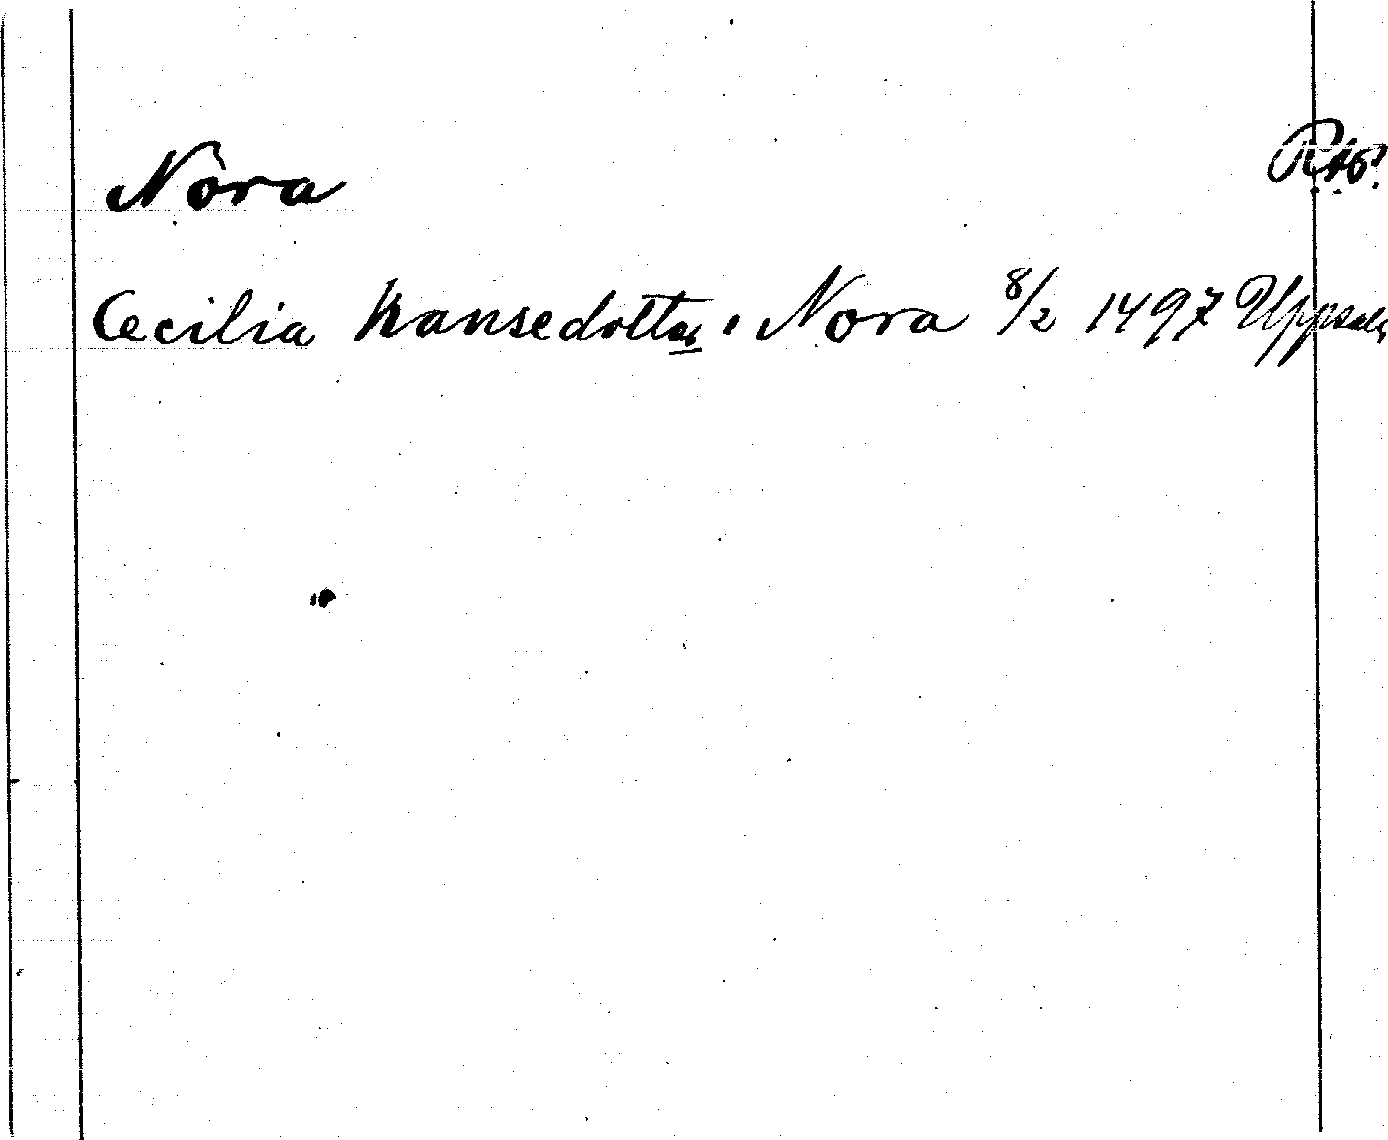 Nora
Cecilia Hansedotter i Nora 8/2 1497 Uppsala